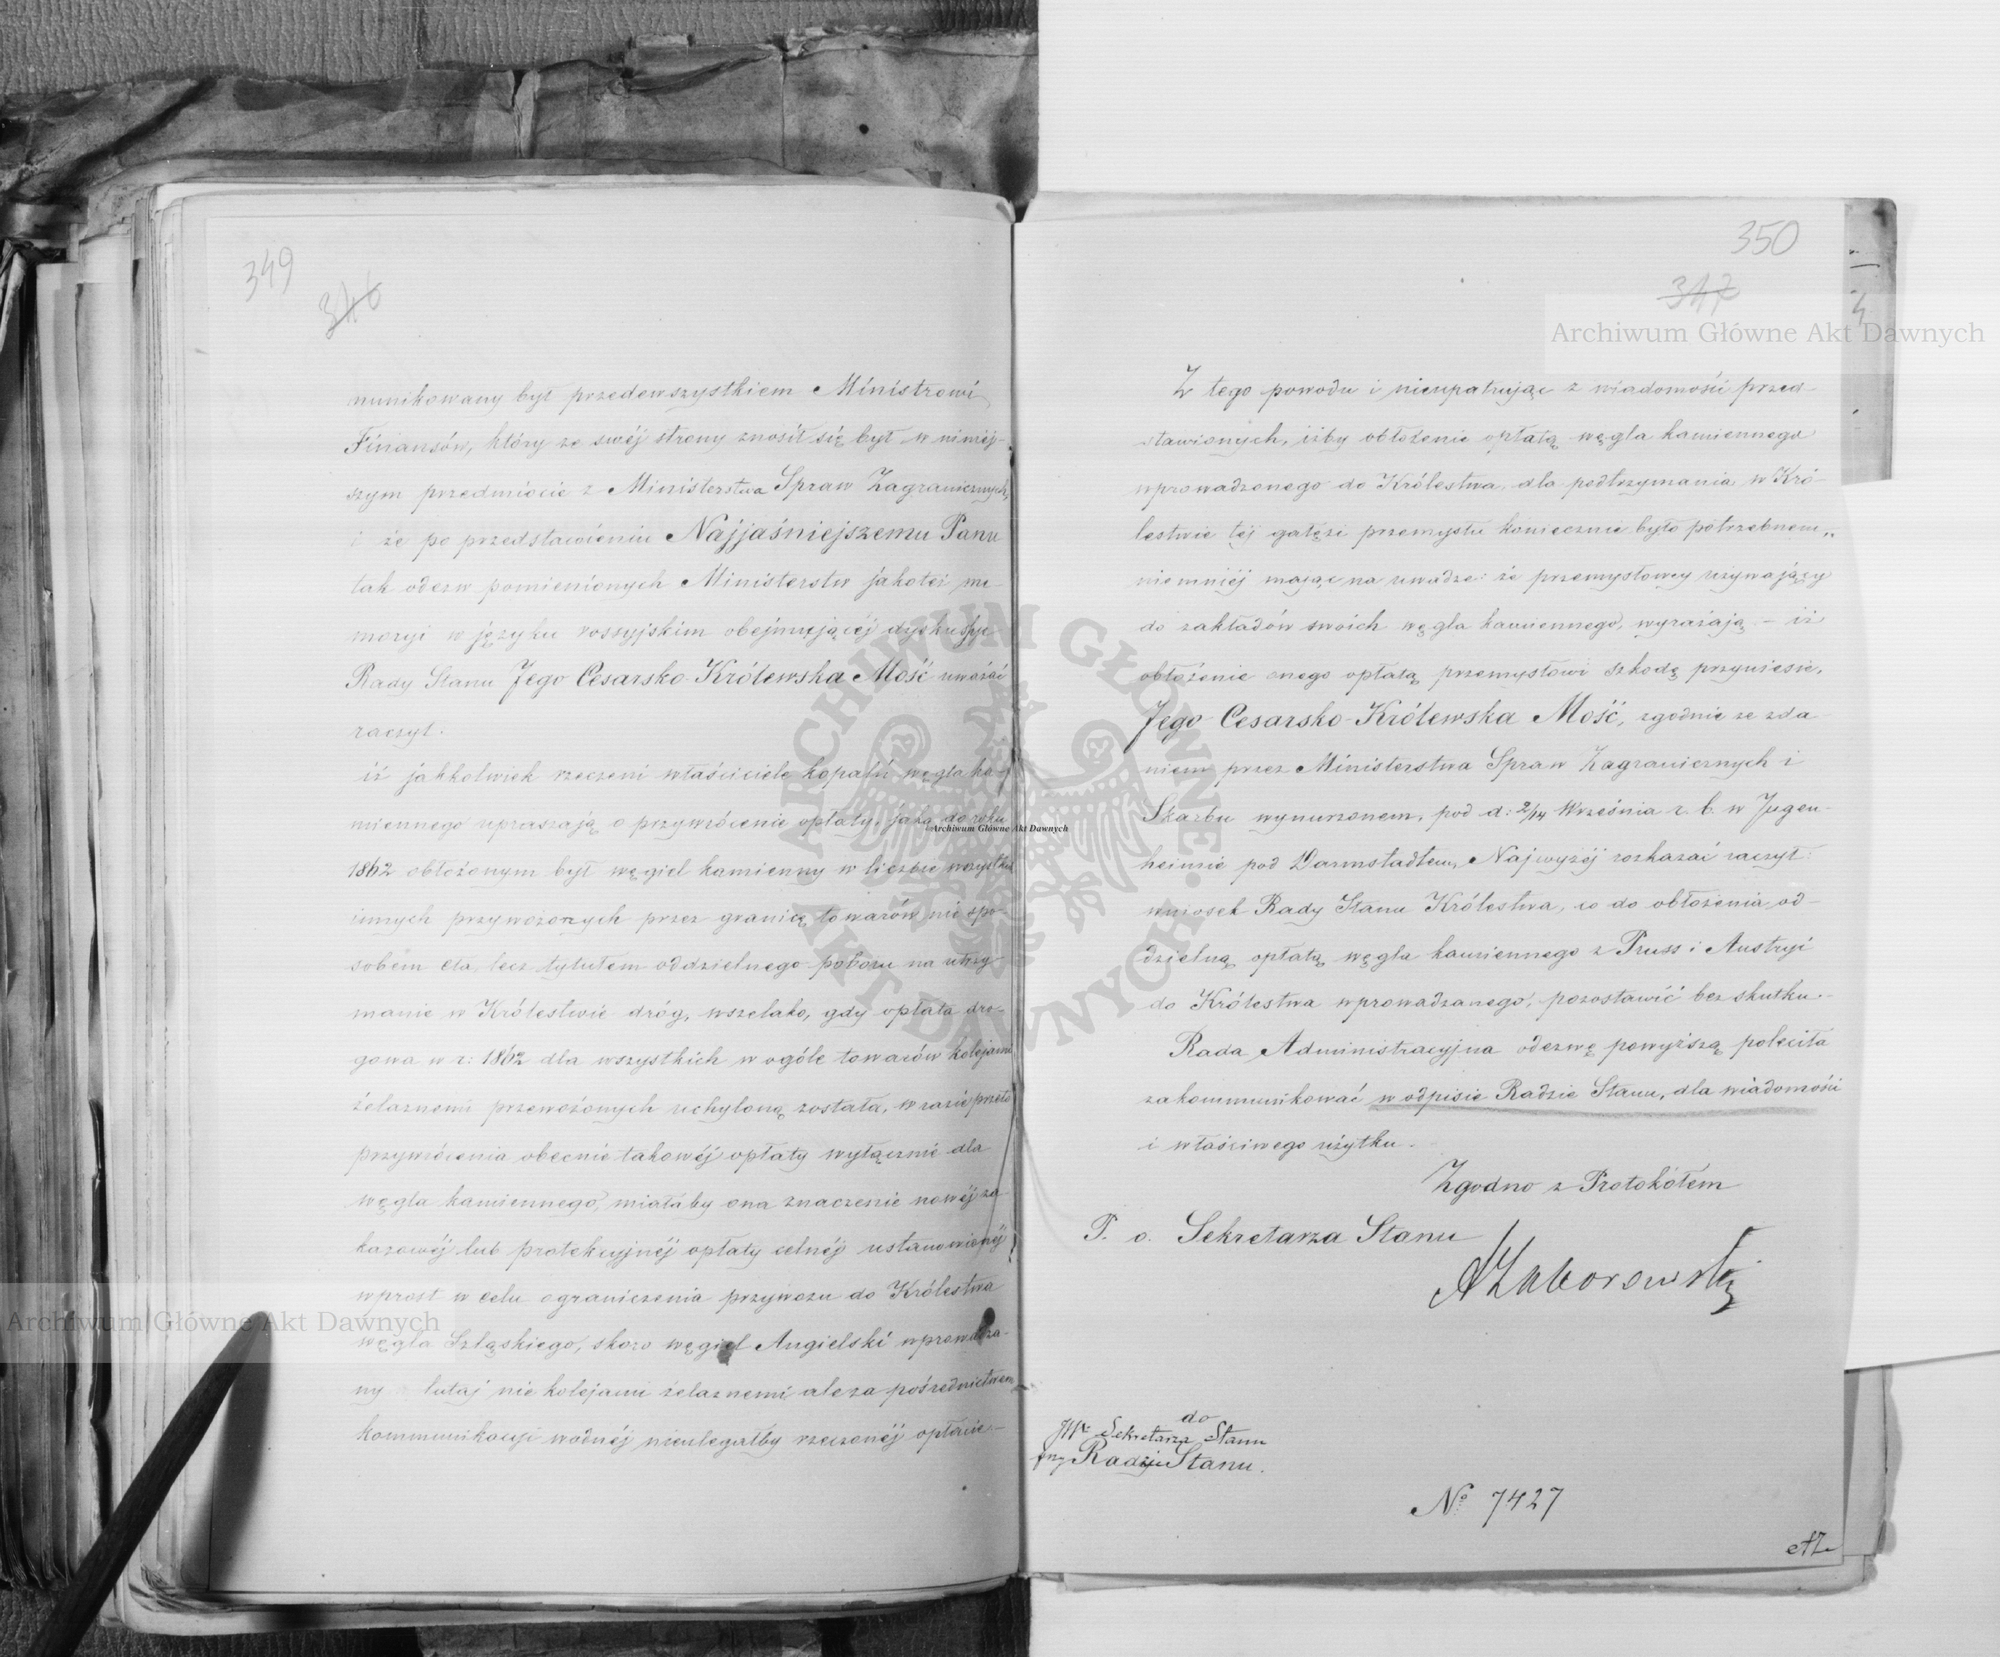 349
346
munikowany był przedewszystkiem Ministrowi
Finansów, który ze swéj strony znosił się był w niniéj-
szym przedmiocie z Ministerstwa Spraw Zagranicznych,
i że po przedstawieniu Najjaśniejszemu Panu
tak odezw pomienionych Ministerstw jakoteż me-
moryi w języku rossyjskim obejmującéj dyskussye
Rady Stanu Jego Cesarsko-Królewska Mość uważać
raczył.
iż jakkolwiek rzeczeni właściciele kopalń węgla ka-
miennego upraszają o przywrócenie opłaty, jaką do roku
1862 obłożonym był węgiel kamienny w liczbie wszystkich
innych przywożonych przez granicę towarów nie spo-
sobem cła, lecz tytułem oddzielnego poboru na utrzy-
manie w Królestwie dróg, wszelako, gdy opłata dro-
gowa w r: 1862 dla wszystkich w ogóle towarów kolejami
żelaznemi przewożonych uchyloną została, w razie przeto
przywrócenia obecnie takowéj opłaty wyłącznie dla
węgla kamiennego, miałaby ona znaczenie nowéj za-
kazowéj lub protekcyjnéj opłaty celnéj ustanowionéj
wprost w celu ograniczenia przywozu do Królestwa
węgla Szląskiego, skoro węgiel Angielski wprowadza-
ny tutaj nie kolejami żelaznemi ale za pośrednictwem
kommunikacyi wodnéj nieulegałby rzeczonéj opłacie.-
350
347
Z tego powodu i nieupatrując z wiadomości przed-
stawionych, iżby obłożenie opłatą węgla kamiennego
wprowadzonego do Królestwa, dla podtrzymania w Kró-
lestwie téj gałęzi przemysłu koniecznie było potrzebnem,
niemniéj mając na uwadze: że przemysłowcy używający
do zakładów swoich węgla kamiennego, wyrażają - iż
obłożenie onego opłatą przemysłowi szkodę przyniesie,
Jego Cesarsko-Królewska Mość, zgodnie ze zda-
niem przez Ministerstwa Spraw Zagranicznych i
Skarbu wynurzonem, pod d: 2/14 Września r. b. w Jugen-
heimie pod Darmstadtem, Najwyżéj rozkazać raczył:
wniosek Rady Stanu Królestwa, co do obłożenia od-
dzielną opłatą węgla kamiennego z Pruss i Austryi
do Królestwa wprowadzanego, pozostawić bez skutku.-
Rada Administracyjna odezwę powyższą poleciła
zakommunikować w odpisie Radzie Stanu, dla wiadomości
i właściwego użytku.
Zgodno z Protokółem
P. o. Sekretarza Stanu
AZaborowski
do
JW. Sekretarza Stanu
przy Radzie Stanu.
No 7427
Archiwum Główne Akt Dawnych
Archiwum Główne Akt Dawnych
Archiwum Główne Akt Dawnych
ARCHIWUM GŁÓWNE
AKT DAWNYCH